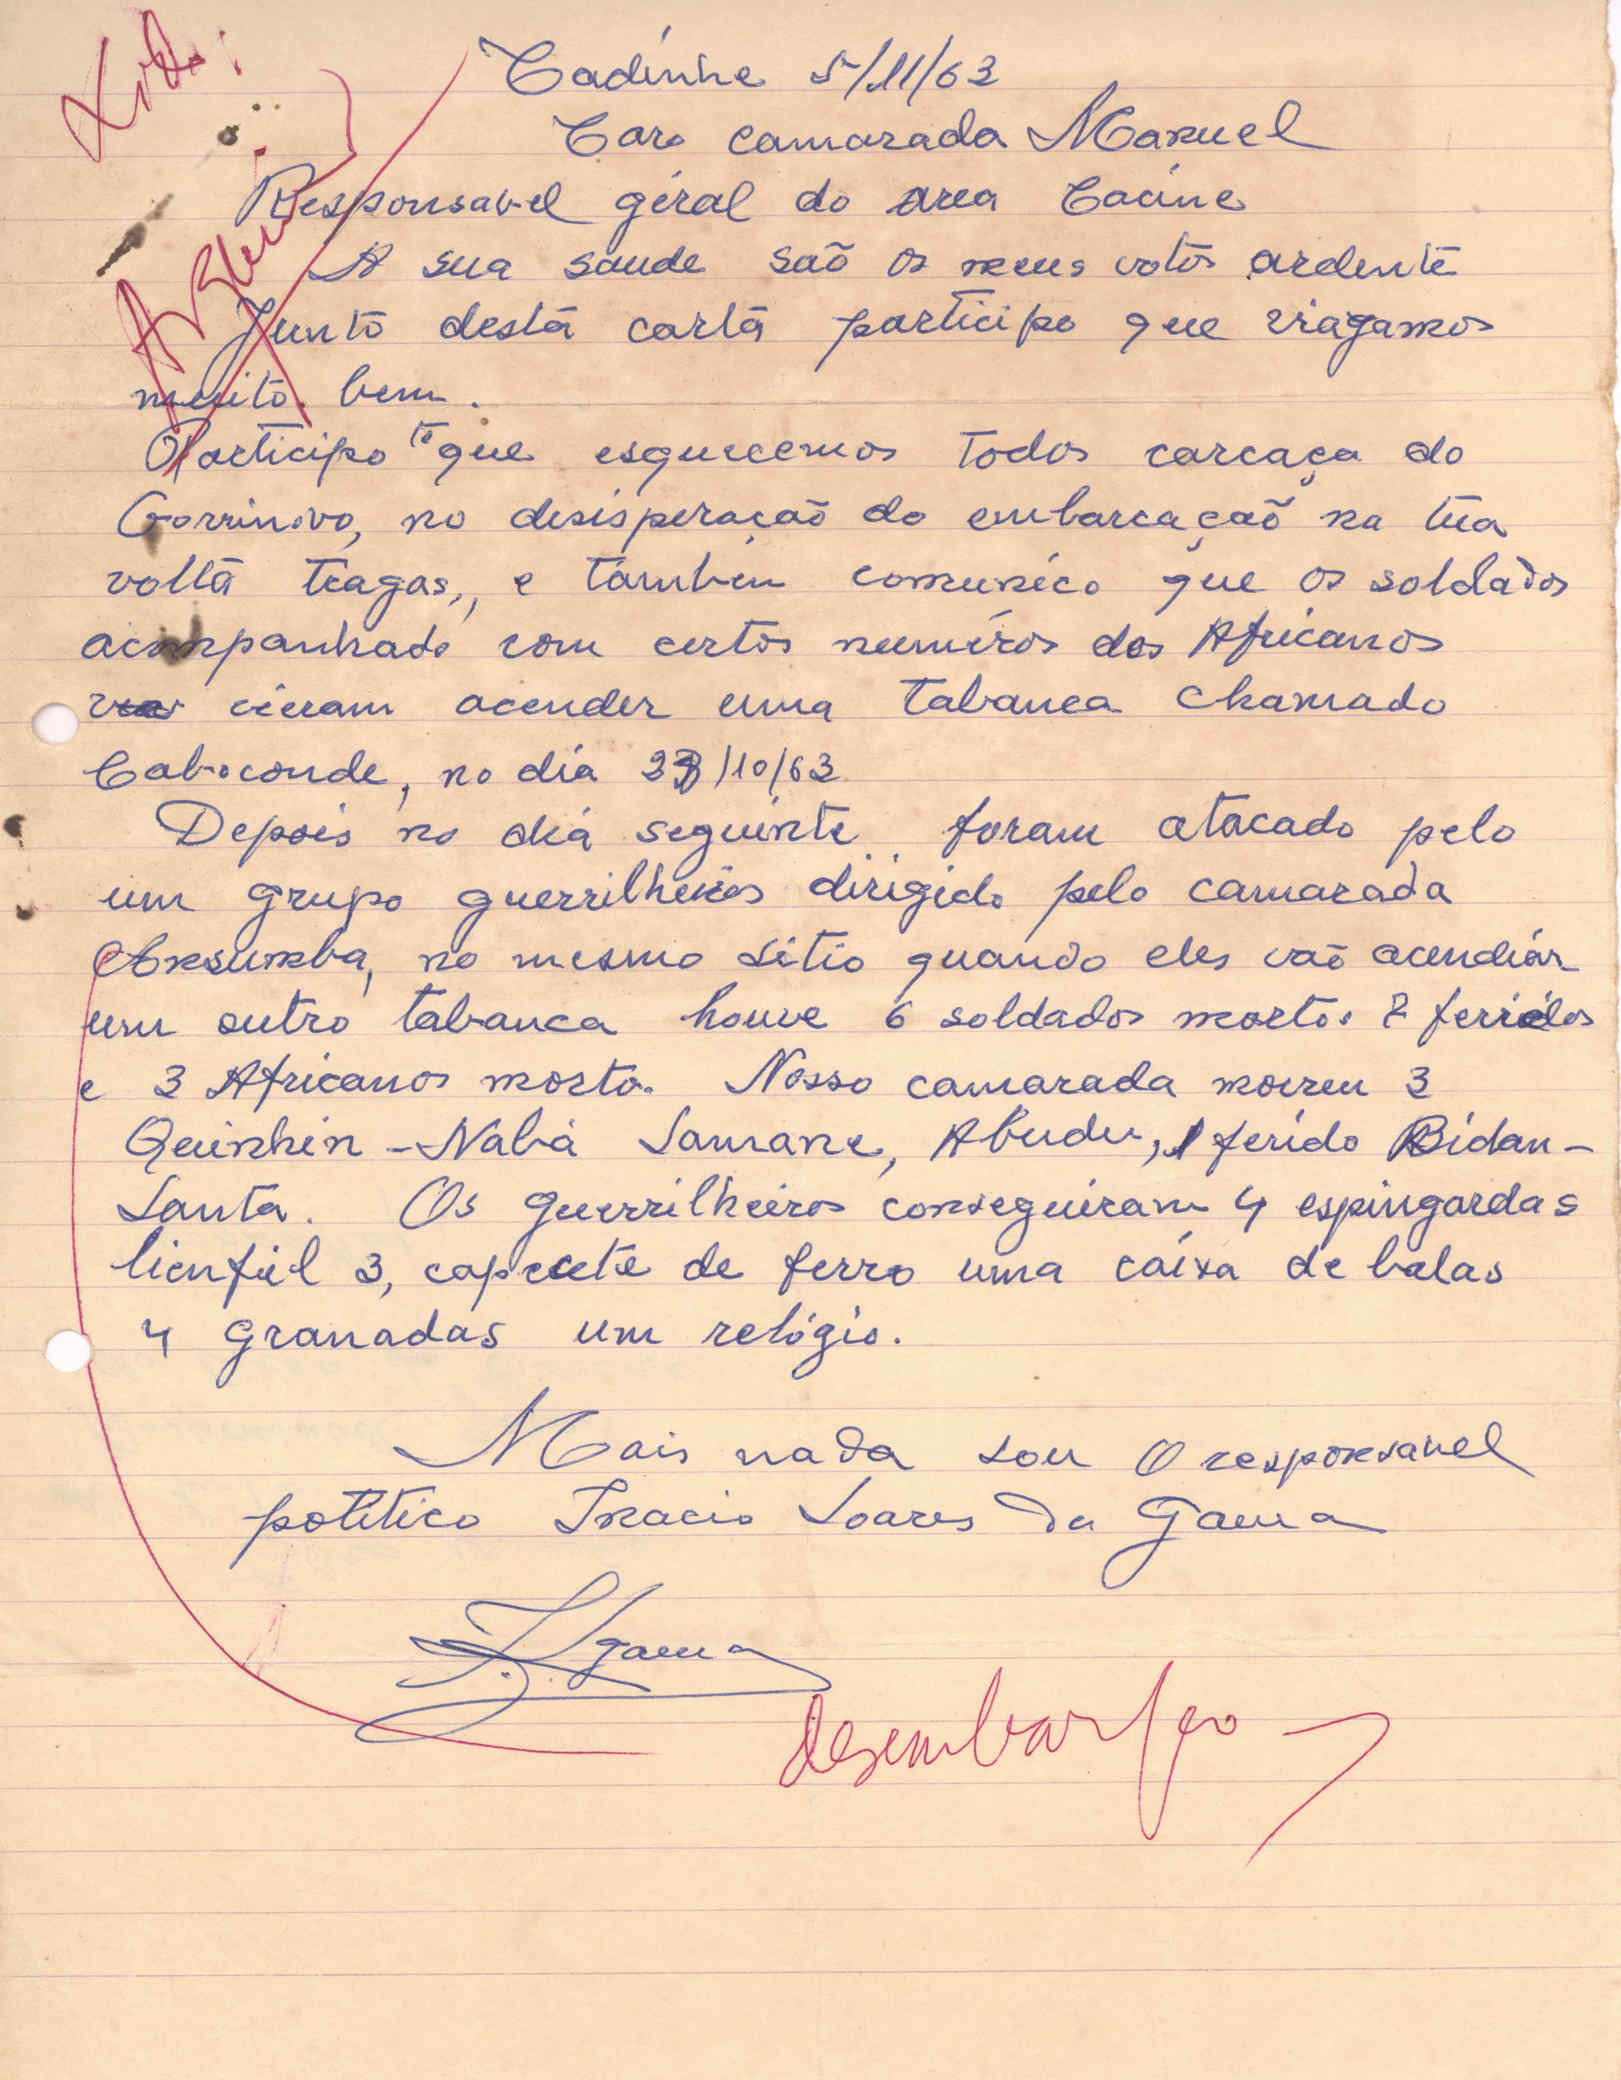 Visto:
Cadinhe 5/11/63
Caro camarada Manuel
Responsavel géral do area Cacine
A sua saude saõ os meus votos ardente
Junto desta carta participo que viagamos
muito bem.
Participo te que esquecemos todos carcaça do
no desisperaçaõ do embarcaçaõ na tua
volta tragas,, e tambẽm comunico que os soldados
acompanhado com certos numéros dos Africanos
vieram acender uma tabanca chamado
Caboconde, no dia /10/63
Depois no dia seguinte foram atacado pelo
um grupo guerrilheiros dirigido pelo camarada
no mesmo sitio quando eles vaõ acendiar
um outro tabanca houve 6 soldados mortos feridos
e 3 Africanos morto. Nosso camarada morreu 3
Quinhin - Nabiá Samane, Abudu, 1 ferido Bidan-
Santa. Os guerrilheiros conseguiram 4 espingardas
lienfiel 3, capacete de ferro uma caixa de balas
4 granadas um relógio.
Mais nada sou O responsavel
politico Inacio Soares da Gama
Gama